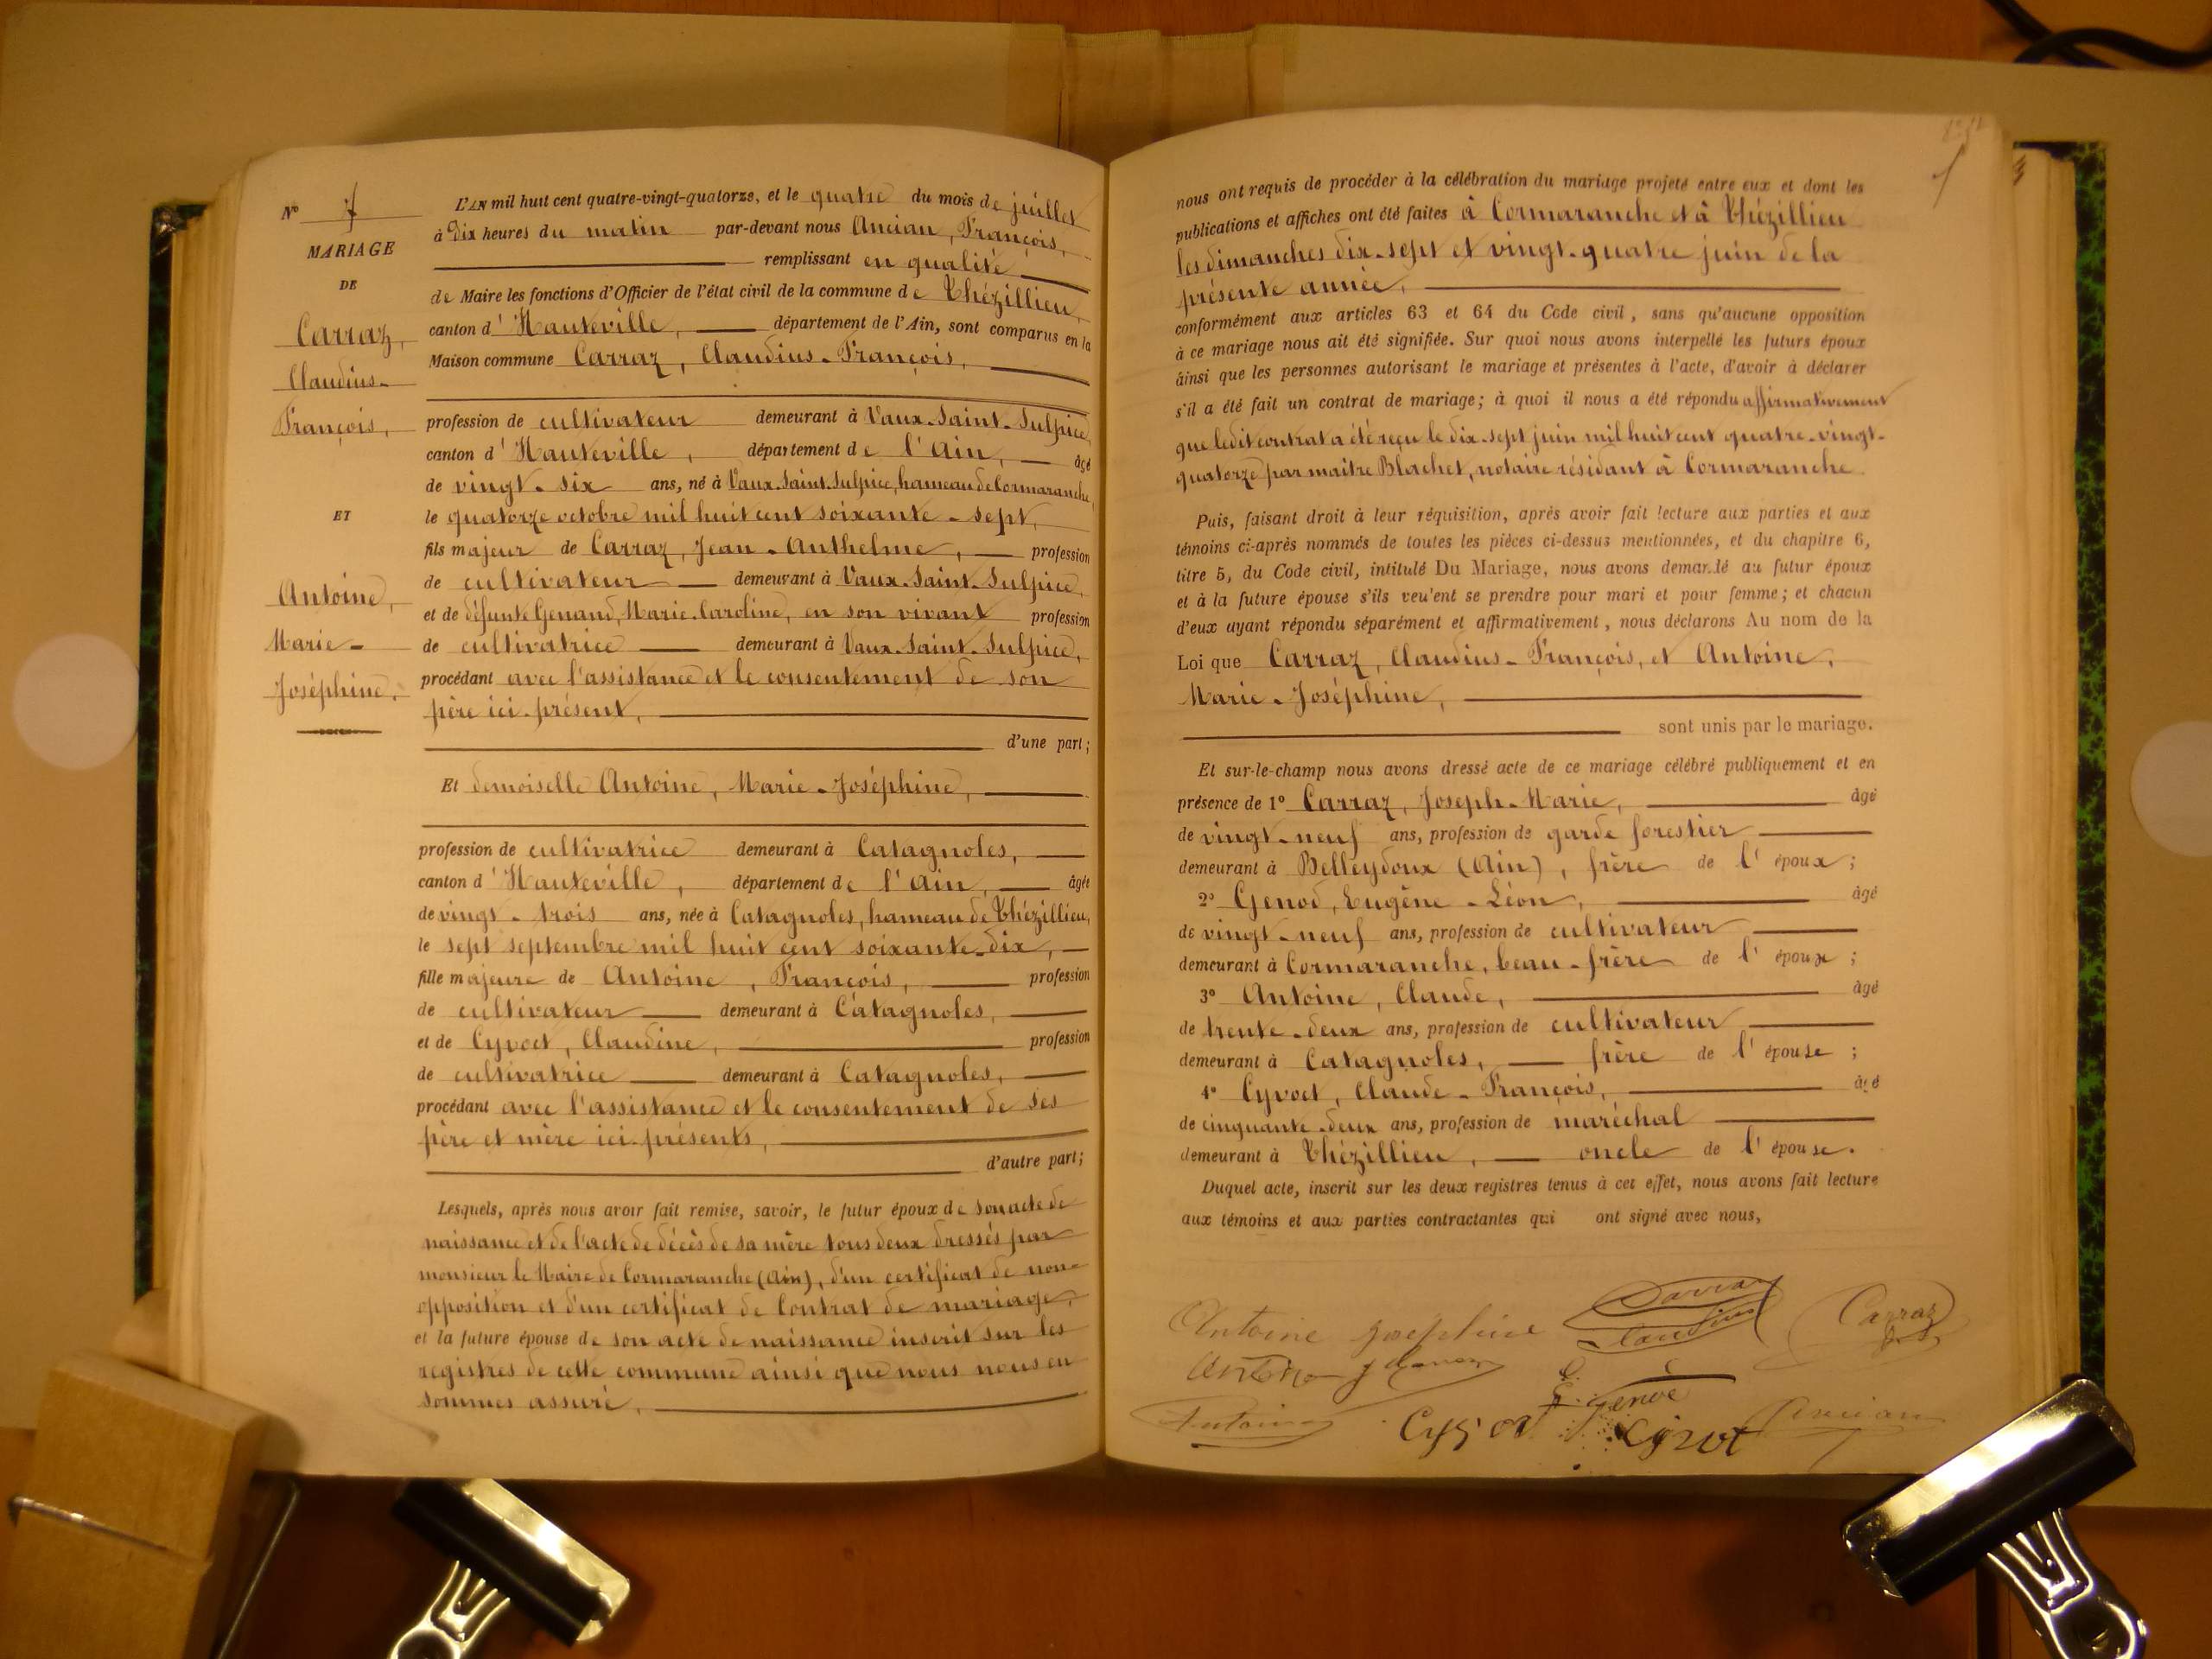 N° 7
MARIAGE
DE
Carraz,
Claudius-
François,
ET
Antoine,
Marie-
Joséphine.
L'AN mil huit cent quatre-vingt-quatorze, et le quatre du mois de juillet
à dix heures du matin par-devant nous Ancian, François,
remplissant en qualité
de Maire les fonctions d'Officier de l'état civil de la commune de Thézillieu,
canton d'Hauteville, département de l'Ain, sont comparus en la
Maison commune Carraz, Claudius-François,
profession de cultivateur demeurant à Vaux-Saint-Sulpice,
canton d'Hauteville, département de l'Ain, âgé
de vingt-six ans, né à Vaux-Saint-Sulpice, hameau de Cormaranche,
le quatorze octobre mil huit cent soixante-sept,
fils majeur de Carraz, Jean-Anthelme, profession
de cultivateur demeurant à Vaux-Saint-Sulpice,
et de défunte Genand, Marie-Caroline, en son vivant profession
de cultivatrice demeurant à Vaux-Saint-Sulpice,
procédant avec l'assistance et le consentement de son
père ici-présent,
d'une part;
Et demoiselle Antoine, Marie-Joséphine,
profession de cultivatrice demeurant à Catagnoles,
canton d'Hauteville, département de l'Ain, âgée
de vingt-trois ans, née à Catagnoles, hameau de Thézillieu,
le sept septembre mil huit cent soixante-dix,
fille majeure de Antoine, François, profession
de cultivateur demeurant à Catagnoles,
et de Cyvoct, Claudine, profession
de cultivatrice demeurant à Catagnoles,
procédant avec l'assistance et le consentement de ses
père et mère ici-présents,
d'autre part;
Lesquels, après nous avoir fait remise, savoir, le futur époux de son acte de
naissance et de l'acte de décès de sa mère tous deux dressés par
monsieur le Maire de Cormaranche (Ain), d'un certificat de non-
opposition et d'un certificat de Contrat de mariage,
et la future épouse de son acte de naissance inscrit sur les
registres de cette commune ainsi que nous nous en
sommes assuré,
nous ont requis de procéder à la célébration du mariage projeté entre eux et dont les
publications et affiches ont été faites à Cormaranche et à Thézillieu
les dimanches dix-sept et vingt-quatre juin de la
présente année,
conformément aux articles 63 et 64 du Code civil, sans qu'aucune opposition
à ce mariage nous ait été signifiée. Sur quoi nous avons interpellé les futurs époux
ainsi que les personnes autorisant le mariage et présentes à l'acte, d'avoir à déclarer
s'il a été fait un contrat de mariage; à quoi il nous a été répondu affirmativement
que ledit contrat a été reçu le dix-sept juin mil huit cent quatre-vingt-
quatorze par maître Blachet, notaire résidant à Cormaranche
Puis, faisant droit à leur réquisition, après avoir fait lecture aux parties et aux
témoins ci-après nommés de toutes les pièces ci-dessus mentionnées, et du chapitre 6,
titre 5, du Code civil, intitulé Du Mariage, nous avons demandé au futur époux
et à la future épouse s'ils veulent se prendre pour mari et pour femme; et chacun
d'eux ayant répondu séparément et affirmativement, nous déclarons Au nom de la
Loi que Carraz, Claudius-François, et Antoine,
Marie-Joséphine,
sont unis par le mariage.
Et sur-le-champ nous avons dressé acte de ce mariage célébré publiquement et en
présence de 1° Carraz, Joseph-Marie, âgé
de vingt-neuf ans, profession de garde forestier
demeurant à Belleydoux (Ain), frère de l'époux;
2° Genod, Eugène-Léon, âgé
de vingt-neuf ans, profession de cultivateur
demeurant à Cormaranche, beau-frère de l'époux;
3° Antoine, Claude, âgé
de trente-deux ans, profession de cultivateur
demeurant à Catagnoles, frère de l'épouse;
4° Cyvoct, Claude-François, âgé
de cinquante-deux ans, profession de maréchal
demeurant à Thézillieu, oncle de l'épouse.
Duquel acte, inscrit sur les deux registres tenus à cet effet, nous avons fait lecture
aux témoins et aux parties contractantes qui ont signé avec nous,
Antoine Joséphine Carraz Claudius Carraz
Antoine
Antoine Genod Ancian